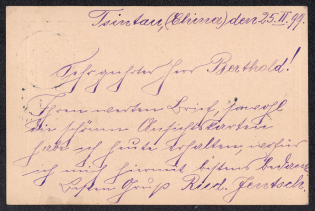 Tsintau, (China) den 25.II.99.
Sehr geehrter Herr Berthold!
Ihren werten Brief, sowohl
die schönen Ansichtskarten
habe ich heute erhalten, wofür
ich mich hiermit bestens bedanke.
Besten Gruß Rud. Jentsch.